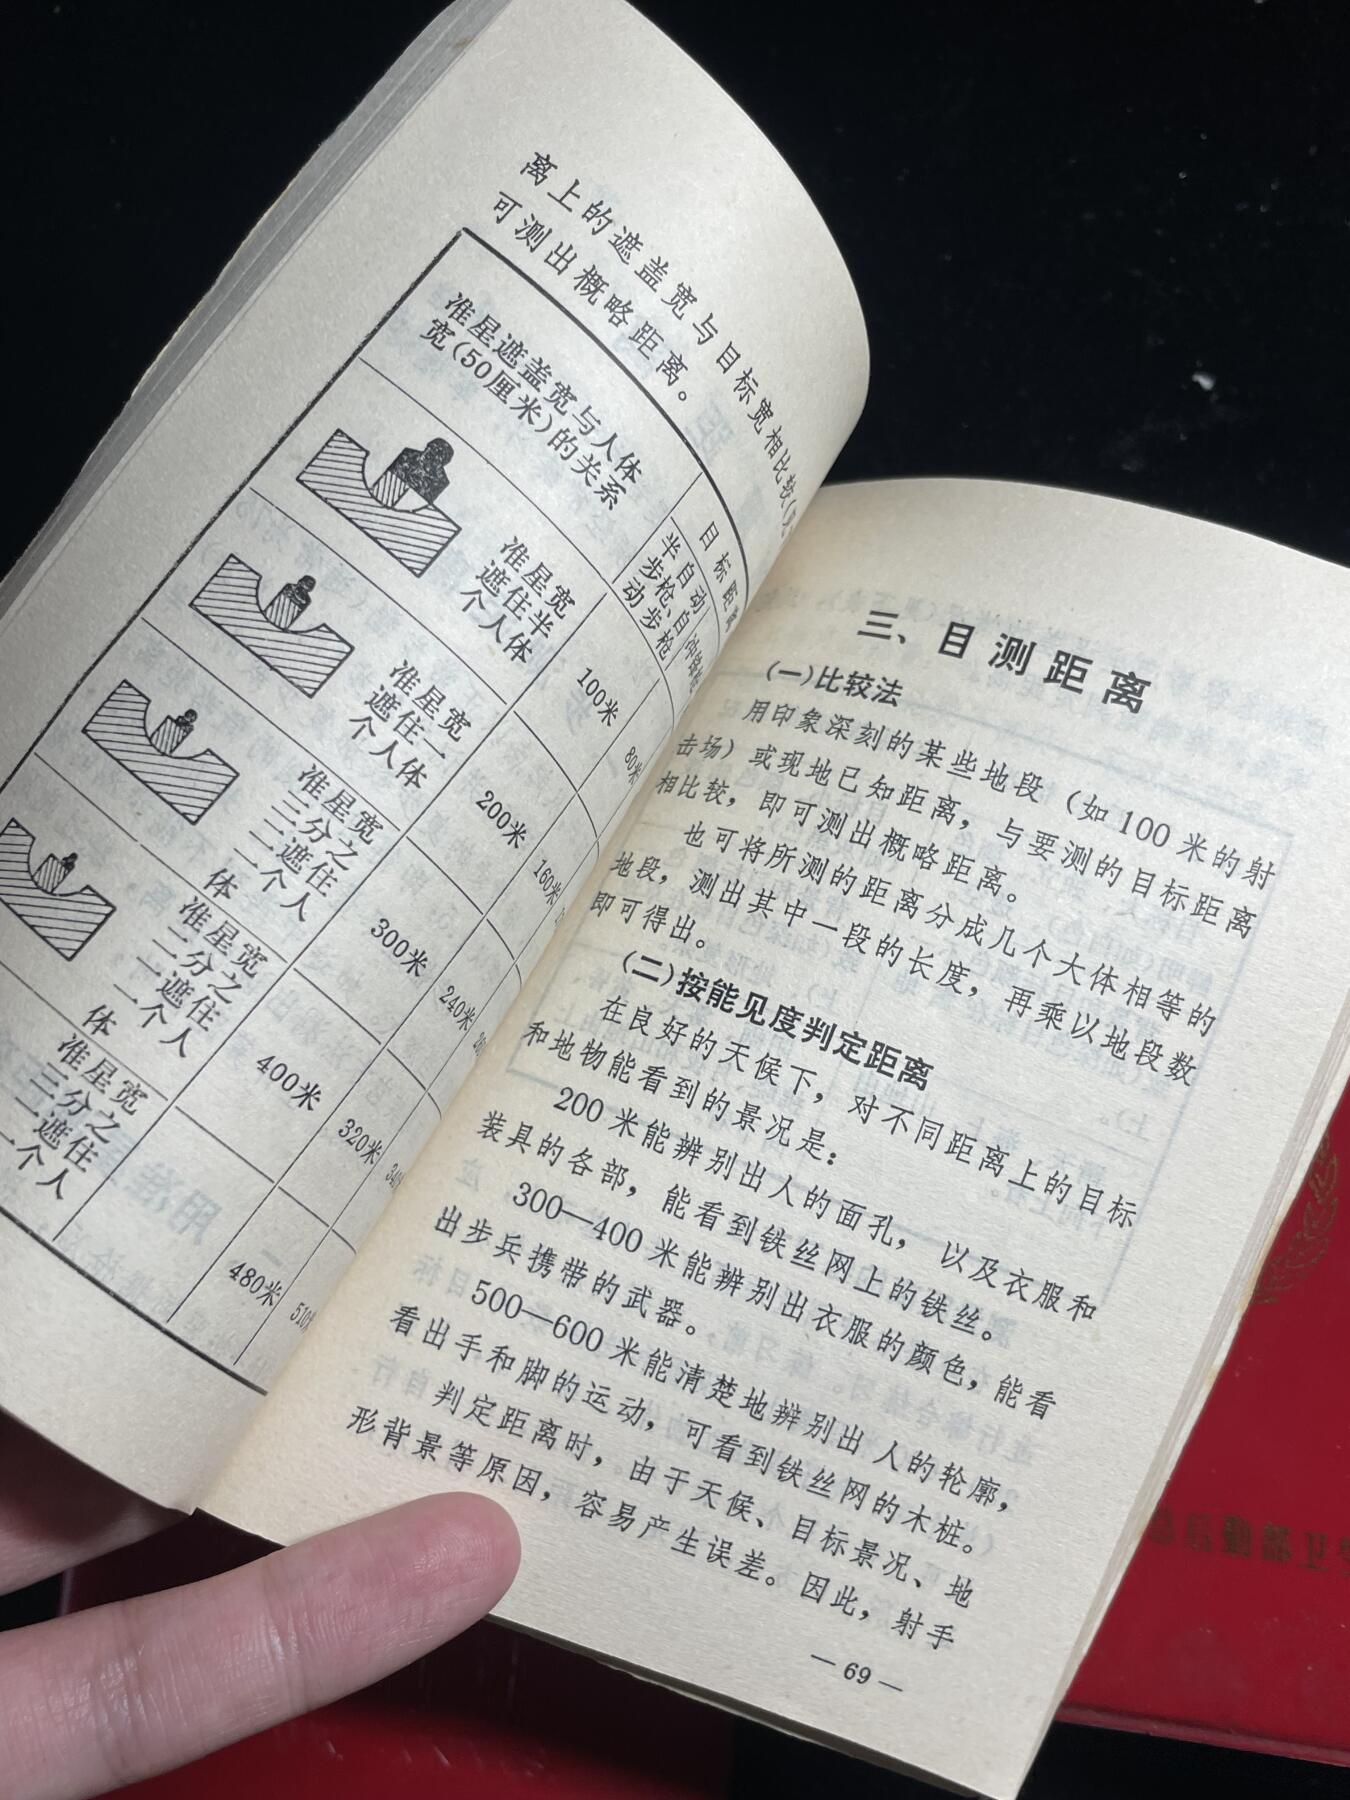 离上的遮盖宽与目标宽相比较
可测出概略距离。
准星遮盖宽与人体
宽(50厘米)的关系
目标距离
半自动
步枪、自
动步枪
冲锋枪
准星宽
遮住半
个人体
100米
80米
准星宽
遮住一
个人体
200米
160米
准星宽
三分之
二遮住
一个人
体
300米
240米
准星宽
二分之
一遮住
一个人
体
400米
320米
340
准星宽
三分之
二遮住
一个人
480米
510
三、目测距离
(一)比较法
用印象深刻的某些地段(如100米的射
击场)或现地已知距离,与要测的目标距离
相比较,即可测出概略距离。
也可将所测的距离分成几个大体相等的
地段,测出其中一段的长度,再乘以地段数
即可得出。
(二)按能见度判定距离
在良好的天候下,对不同距离上的目标
和地物能看到的景况是:
200米能辨别出人的面孔,以及衣服和
装具的各部,能看到铁丝网上的铁丝。
300—400米能辨别出衣服的颜色,能看
出步兵携带的武器。
500—600米能清楚地辨别出人的轮廓,
看出手和脚的运动,可看到铁丝网的木桩。
判定距离时,由于天候、目标景况、地
形背景等原因,容易产生误差。因此,射手
— 69 —